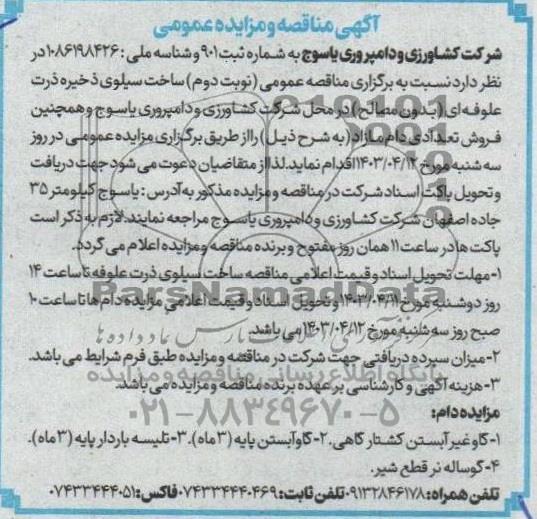 آگهی مناقصه و مزایده عمومی
شرکت کشاورزی و دامپروری یاسوج به شماره ثبت ۹۰۱ و شناسه ملی : ۱۰۸۶۱۹۸۴۲۶ در
نظر دارد نسبت به برگزاری مناقصه عمومی (نوبت دوم) ساخت سیلوی ذخیره ذرت
علوفه ای (بدون مصالح) در محل شرکت کشاورزی و دامپروری یاسوج و همچنین
فروش تعدادی دام مازاد (به شرح ذیل) را از طریق برگزاری مزایده عمومی در روز
سه شنبه مورخ ۱۴۰۳/۰۴/۱۲ اقدام نماید. لذا از متقاضیان دعوت می شود جهت دریافت
و تحویل پاکت اسناد شرکت در مناقصه و مزایده مذکور به آدرس : یاسوج کیلومتر ۳۵
جاده اصفهان شرکت کشاورزی و دامپروری یاسوج مراجعه نمایند. لازم به ذکر است
پاکت ها در ساعت ۱۱ همان روز مفتوح و برنده مناقصه و مزایده اعلام می گردد.
۱- مهلت تحویل اسناد و قیمت اعلامی مناقصه ساخت سیلوی ذرت علوفه تا ساعت ۱۴
روز دوشنبه مورخ ۱۴۰۳/۰۴/۱۱ و تحویل اسناد و قیمت اعلامی مزایده دام ها تا ساعت ۱۰
صبح روز سه شنبه مورخ ۱۴۰۳/۰۴/۱۲ می باشد.
۲- میزان سپرده دریافتی جهت شرکت در مناقصه و مزایده طبق فرم شرایط می باشد.
۳- هزینه آگهی و کارشناسی بر عهده برنده مناقصه و مزایده می باشد.
مزایده دام:
۱- گاو غیر آبستن کشتار گاهی. ۲- گاو آبستن پایه (۳ماه). ۳- تلیسه باردار پایه (۳ماه).
۴- گوساله نر قطع شیر.
تلفن همراه: ۰۹۱۳۲۸۴۶۱۷۸ تلفن ثابت: ۰۷۴۳۳۴۴۴۰۴۶۹ فاکس: ۰۷۴۳۳۴۴۴۰۵۱
ParsNamadData
پایگاه اطلاع رسانی مناقصه و مزایده
۰۲۱-۸۸۳۴۹۶۷۰-۵